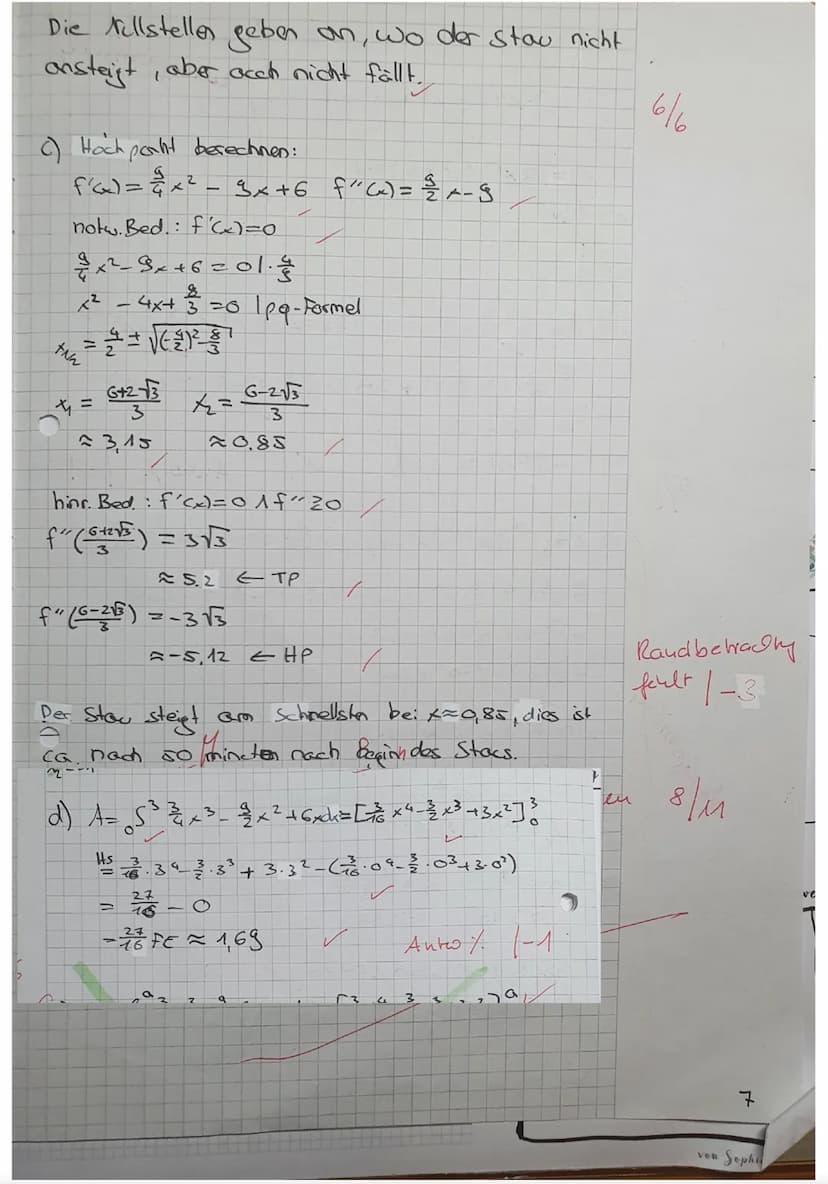 Die Nullstellen geben an, wo der Stau nicht
ansteigt, aber auch nicht fällt.
6/6
c) Hochpunkt berechnen:
f'(x) = 9/4 x² - 9x + 6 f''(x) = 9/2 x - 9
notw. Bed.: f'(x)=0
9/4 x² - 9x + 6 = 0 | · 4/9
x² - 4x + 8/3 = 0 | pq-Formel
x₁/₂ = 4/2 ± √((-4/2)² - 8/3)
x₁ = (6+2√3)/3 x₂ = (6-2√3)/3
≈ 3,15 ≈ 0,85
hinr. Bed.: f'(x)=0 ∧ f''≷0
f''((6+2√3)/3) = 3√3
≈ 5,2 ← TP
f''((6-2√3)/3) = -3√3
≈ -5,12 ← HP
Randbetrachtung
fehlt /-3
Der Stau steigt am schnellsten bei x≈0,85, dies ist
ca. nach 50 Minuten nach Beginn des Staus.
en 8/11
d) A = ₀∫³ 3/4 x³ - 9/2 x² + 6x dx = [3/16 x⁴ - 3/2 x³ + 3x²]₀³
HS = 3/16 · 3⁴ - 3/2 · 3³ + 3 · 3² - (3/16 · 0⁴ - 3/2 · 0³ + 3 · 0²)
= 27/16 - 0
= 27/16 FE ≈ 1,69
/-1
7
von Soph